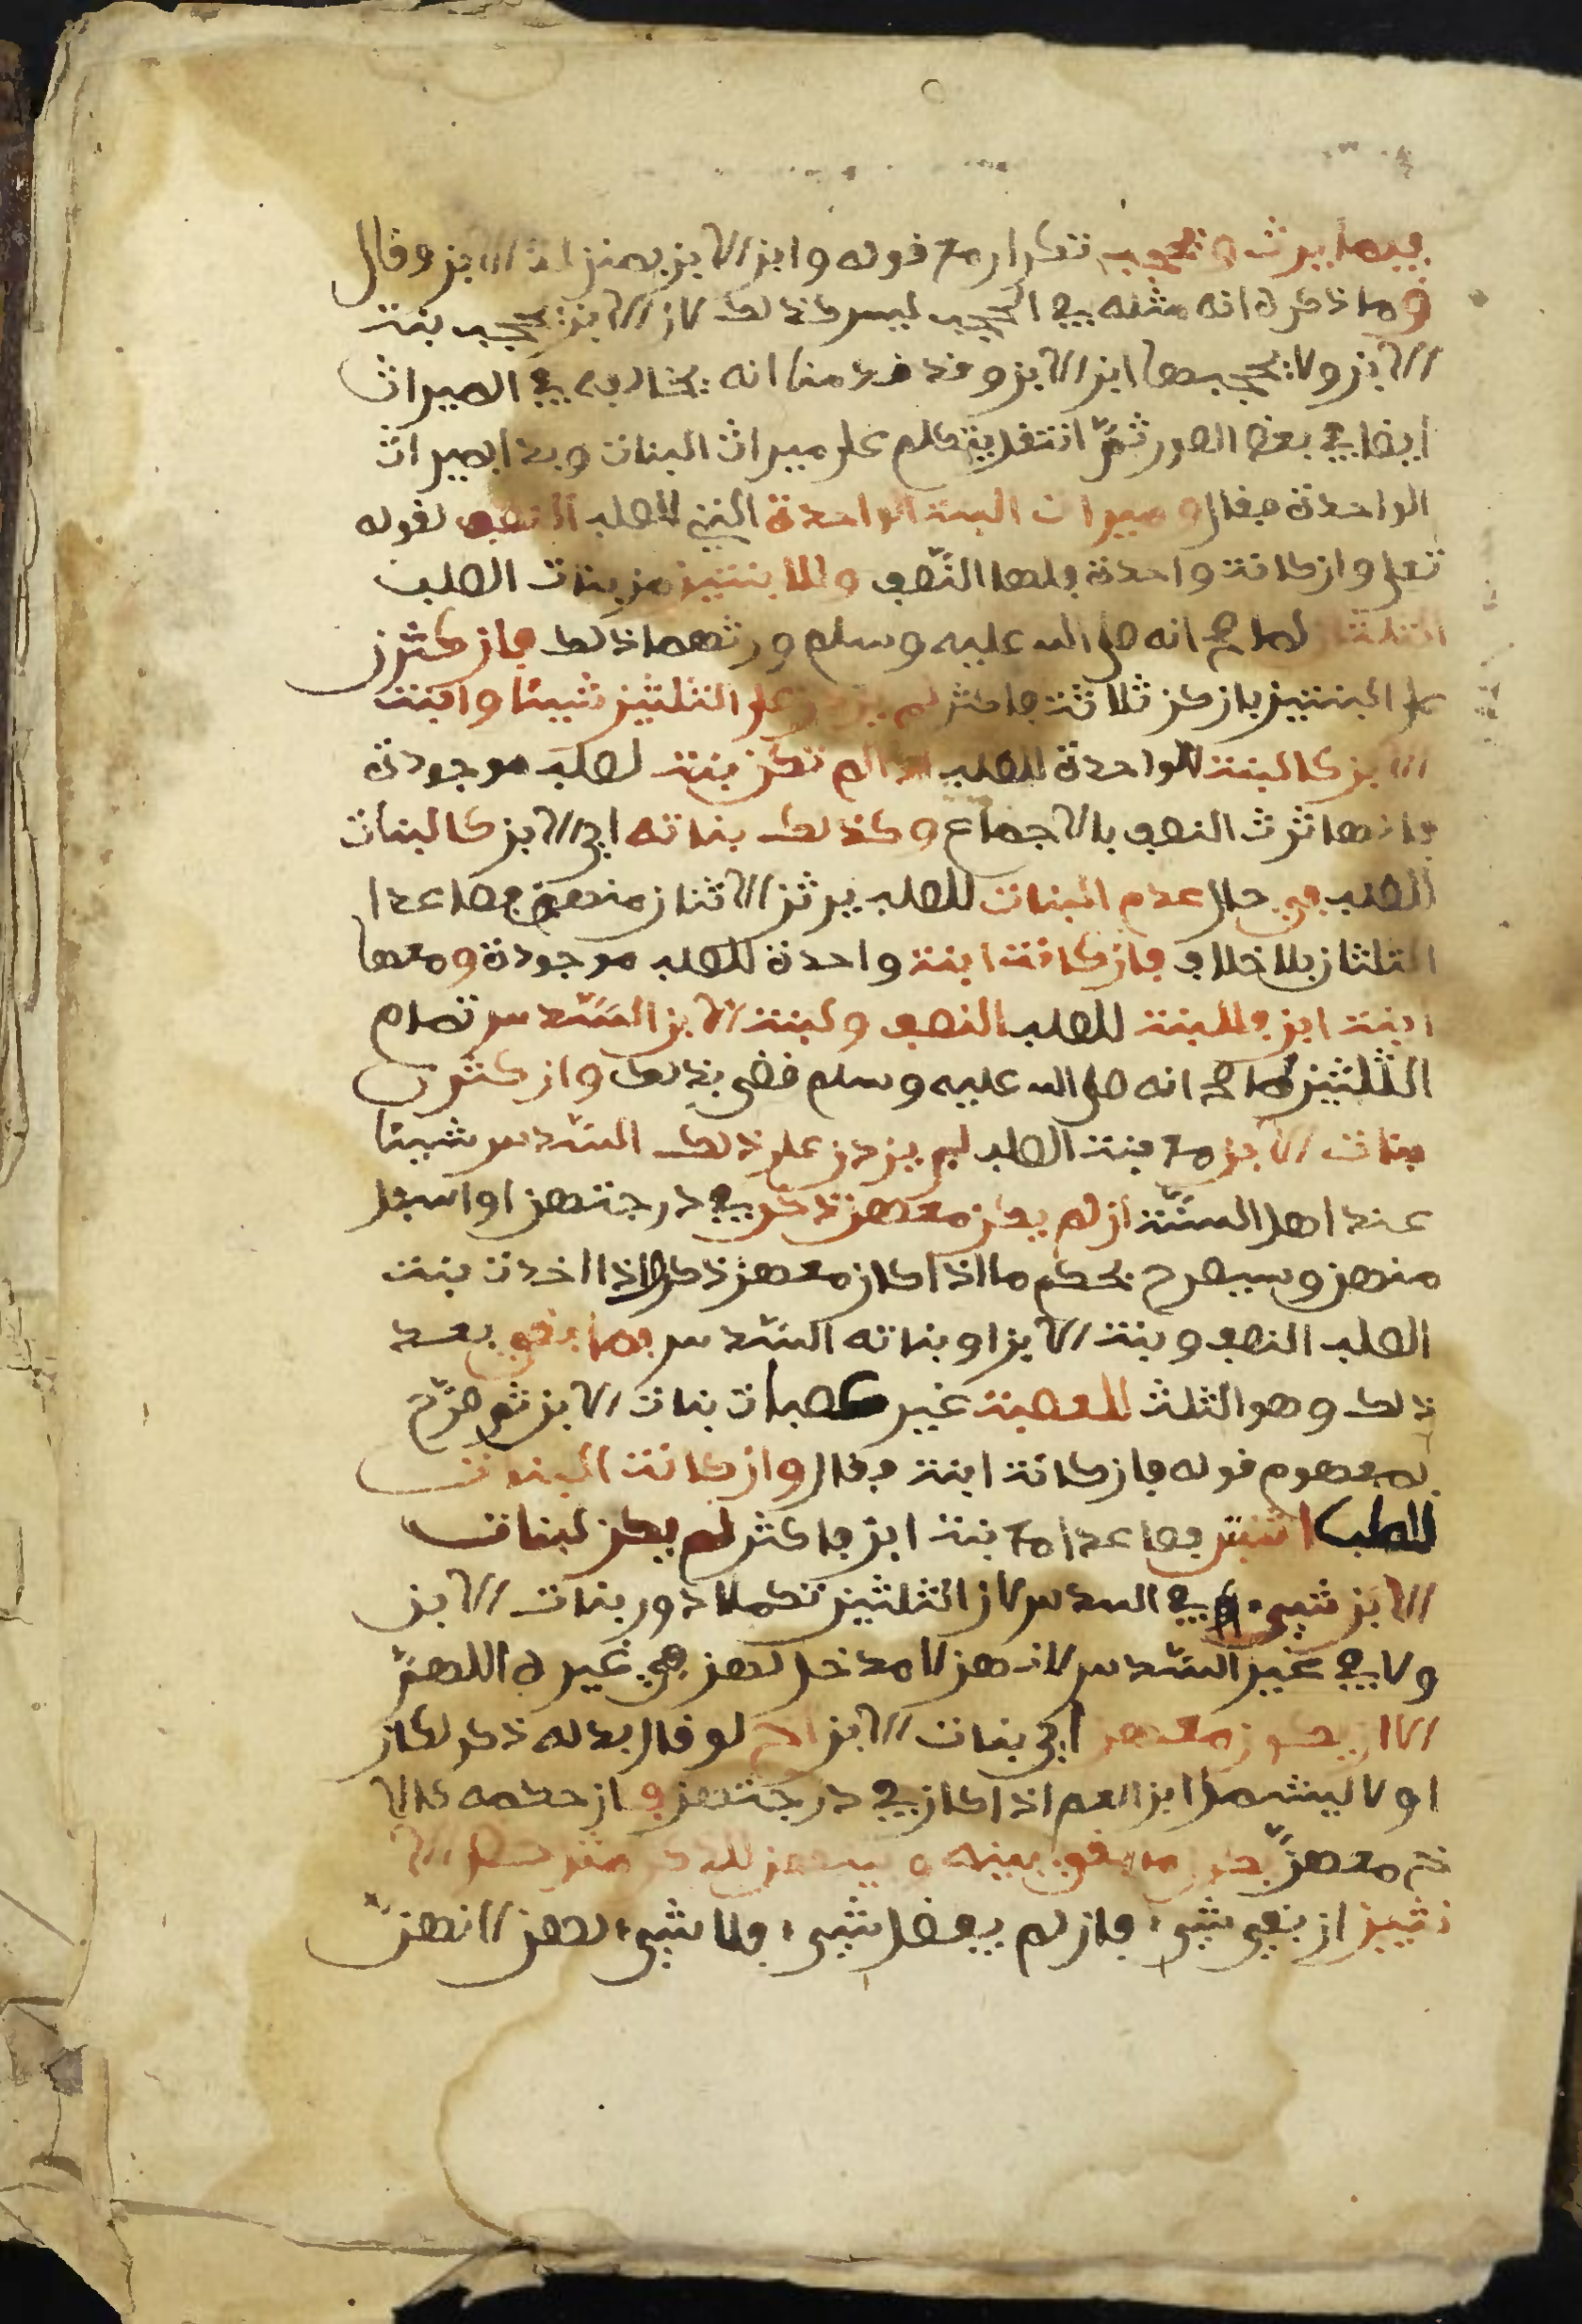 فيما يرث ويحجب تكرار مع قوله وابن الابن بمنزلة الابن وقال
ق وما ذكره انه مثله في الحجب ليس كذلك لان الابن يحجب بنت
الابن ولا يحجبها ابن الابن وقد قدمنا انه يخالفه في الميراث
ايضا في بعض الصور ثم انتقل يتكلم على ميراث البنات وبدا بميراث
الواحدة فقال وميراث البنت الواحدة التي للصلب النصف لقوله
تعلى وان كانت واحدة فلها النصف وللابنتين من بنات الصلب
الثلثان لما صح انه صلى الله عليه وسلم ورثهما ذلك فان كثرن
على البنتين بان كن ثلاثة فاكثر لم يزدن على الثلثين شيئا وابنت
الابن كالبنت الواحدة للصلب اذا لم تكن بنت لصلب موجودة
فانها ترث النصف بالاجماع وكذلك بناته اي الابن كالبنات
للصلب في حال عدم البنات للصلب يرثن الاثنان منهن فصاعدا
الثلثان بلا خلاف فان كانت ابنت واحدة للصلب موجودة ومعها
ابنت ابن فللبنت للصلب النصف ولبنت الابن السدس تمام
الثلثين لما صح انه صلى الله عليه وسلم قضى بذلك وان كثرن
بنات الابن مع بنت الصلب لم يزدن على ذلك السدس شيئا
عند اهل السنة ان لم يكن معهن ذكر في درجتهن او اسفل
منهن وسيصرح بحكم ما اذا كان معهن ذكر واذا اخدت بنت
الصلب النصف وبنت الابن او بناته السدس فما بقي بعد
ذلك وهو الثلث للعصبت غير عصبات بنات الابن ثم صرح
بمفهوم قوله فان كانت ابنت فقال وان كانت البنات
للصلب اثنتين فصاعدا مع بنت ابن فاكثر لم يكن لبنات
الابن شيء في السدس لان الثلثين تكملا دون بنات الابن
ولا في غير السدس لانهن لا مدخل لهن في غيره اللهم
الا ان يكون معهن اي بنات الابن اخ لو قال بدله ذكر لكان
اولا ليشمل ابن العم اذا كان في درجتهن فان حكمه كالا
خ معهن فيكون ما بقي بينه وبينهن للذكر مثل حظ الا
نثيين ان بقي شيء فان لم يفضل شيء فلا شيء لهن لانهن